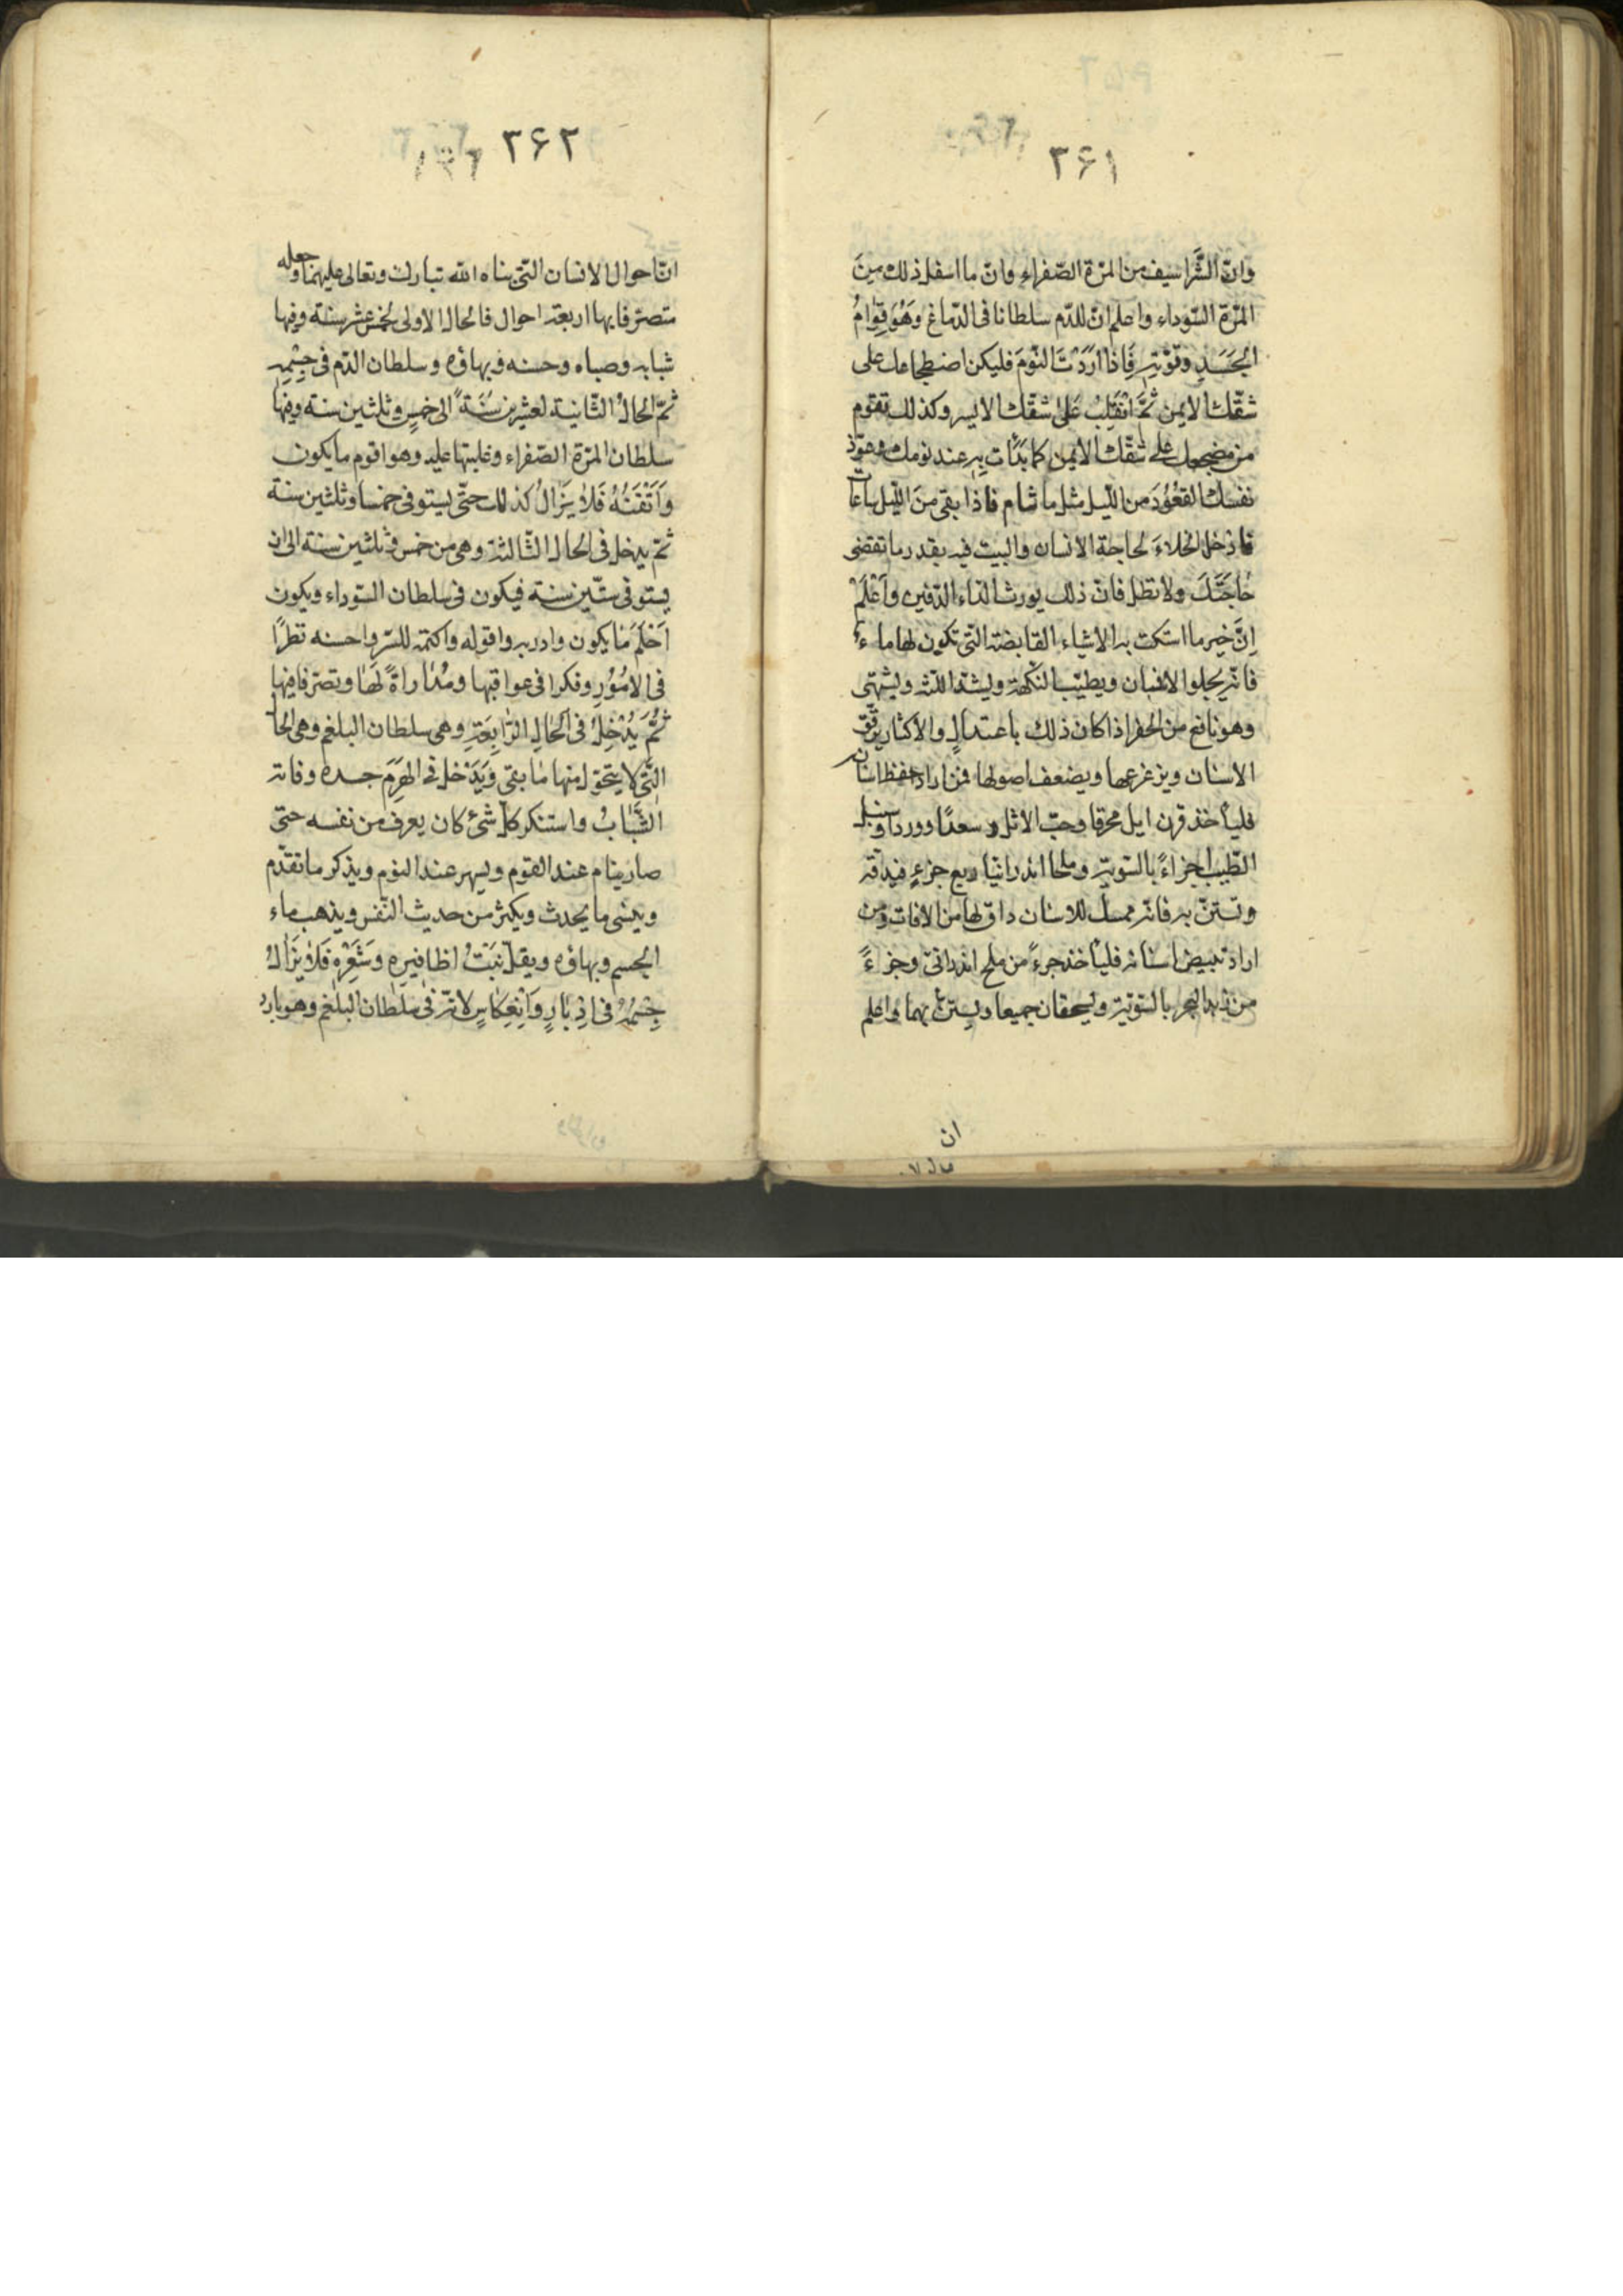 ۳۶۱
وانّ الشَّراسيف من المرّة الصّفراء وانّ ما اسفل ذلك مِنَ
المرّة السّوداء واعلم انّ للدّم سلطانا فى الدّماغ وَهُوَ قِوامُ
الجَسَدِ وقوّتِهِ فَاذا اَرَدْتَ النّومَ فليكن اضطجاعك على
شقّك الايمن ثُمَّ انْقَلِبْ عَلىٰ شقّك الايسر وكذلك تقوم
من مضجعك على شقّك الايمن كما بَدَأت بِه عند نومك وعوّد
نفسك القعُوُدَ من اللّيل مثل ما تنام فاذا بقى منَ اللّيل ساعات
فادخل الخلاءَ لحاجة الانسان والبث فيه بقدر ما تقضى
حٰاجَتَكَ ولا تطل فانّ ذلك يورث الدّاء الدّفين وَاَعْلَمْ
اِنَّ خير ما استكت به الاشياء القابضة الّتى تكون لها ماء
فانّه يجلوا الاسنان ويطيّب النّكهة ويشدّ اللّثه ويشهّى
وهو نافع من الحفر اذا كان ذلك باعتدالٍ والاكثار يرقّق
الاسنان ويزعزعها ويضعف اصولها فمن اراد حفظ اسنان
فليأخذ قرن ايل محرقا وحبّ الاثل و سعدًا ووردا وسنبل
الطّيب اجزاءً بالسّويّة وملحا اندرانيّا ربع جزءٍ فيدقّه
وتستنّ به فانّه ممسك للاسنان داق لها من الافات ومن
اراد تبييض اسنانه فليأخذ جزءً من ملح اندرانى وجزءً
من زبد البحر بالسّويّة وليسحقان جميعا ويستنّ بهما واعلم
ان
۳۶۲
انّ احوال الانسان الّتى بناه اللّه تبارك وتعالى عليهما وجعله
متصرّفا بها اربعة احوال فالحال الاولى لخمس عشر سنة وفيها
شبابه وصباه وحسنه وبهاؤه وسلطان الدّم فى جِسْمِه
ثمّ الحالُ الثّانية لعشرين سَنَةً الى خمسٍ وثلثين سنة وفيها
سلطان المرّة الصّفراء وغلبتها عليه وهو اقوم ما يكون
وَاَتْقَنُهُ فَلا يَزالُ كذلك حتّى يستوفى خمسا وثلثين سنة
ثمّ يدخل فى الحال الثّالثة وهى من خمس وثلثين سنة الى ان
يستوفى ستّين سنة فيكون فى سلطان السّوداء ويكون
اَحْلَمَ ما يكون وادربه واقوله واكتمه للسّر واحسنه نظرًا
فى الامُوُرِ وفكرا فى عواقبها ومُدٰاراةً لَهٰا وتصرّفا فيها
ثُمَّ يَدْخِلُ فى الحٰالِ الرّابِعَةِ وهى سلطان البلغم وهى الحا
الّتى لا يتحوّل منها ما بقى وَيَدْخل فى الهَرِمَ جسده وفاته
الشّبٰابُ واستنكر كل شئ كان يعرف من نفسه حتى
صار ينام عند القوم ويسهر عند النّوم ويذكر ما تقدّم
وينسى ما يحدث ويكثر من حديث النّفس ويذهب ماء
الجسم وبهاؤه ويقل نَبَتُ اظافيره وَشَعْرِه فَلا يَزالُ
جِسْمُهُ فى اِدْبٰارٍ وَاَنْعِكٰاسٍ لانّه فى سلطان البلغم وهو بارد